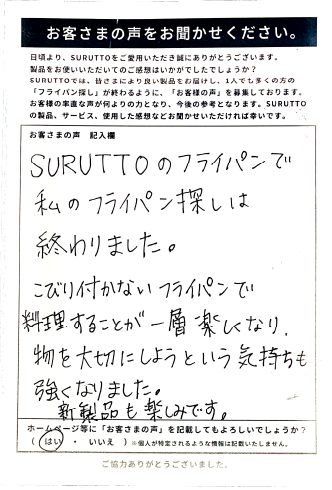 お客さまの声をお聞かせください。
日頃より、SURUTTOをご愛用いただき誠にありがとうございます。
製品をお使いいただいてのご感想はいかがでしたでしょうか？
SURUTTOでは、皆さまにより良い製品をお届けし、1人でも多くの方の
「フライパン探し」が終わるように、「お客様の声」を募集しております。
お客様の率直な声が何よりの力となり、今後の参考となります。SURUTTO
の製品、サービス、使用した感想などお聞かせいただければ幸いです。
お客さまの声　記入欄
SURUTTOのフライパンで
私のフライパン探しは
終わりました。
こびり付かないフライパンで
料理することが一層楽しくなり、
物を大切にしようという気持ちも
強くなりました。
新製品も楽しみです。
ホームページ等に「お客さまの声」を記載してもよろしいでしょうか？
（ はい ・ いいえ ）※個人が特定されるような情報は記載いたしません。
ご協力ありがとうございました。